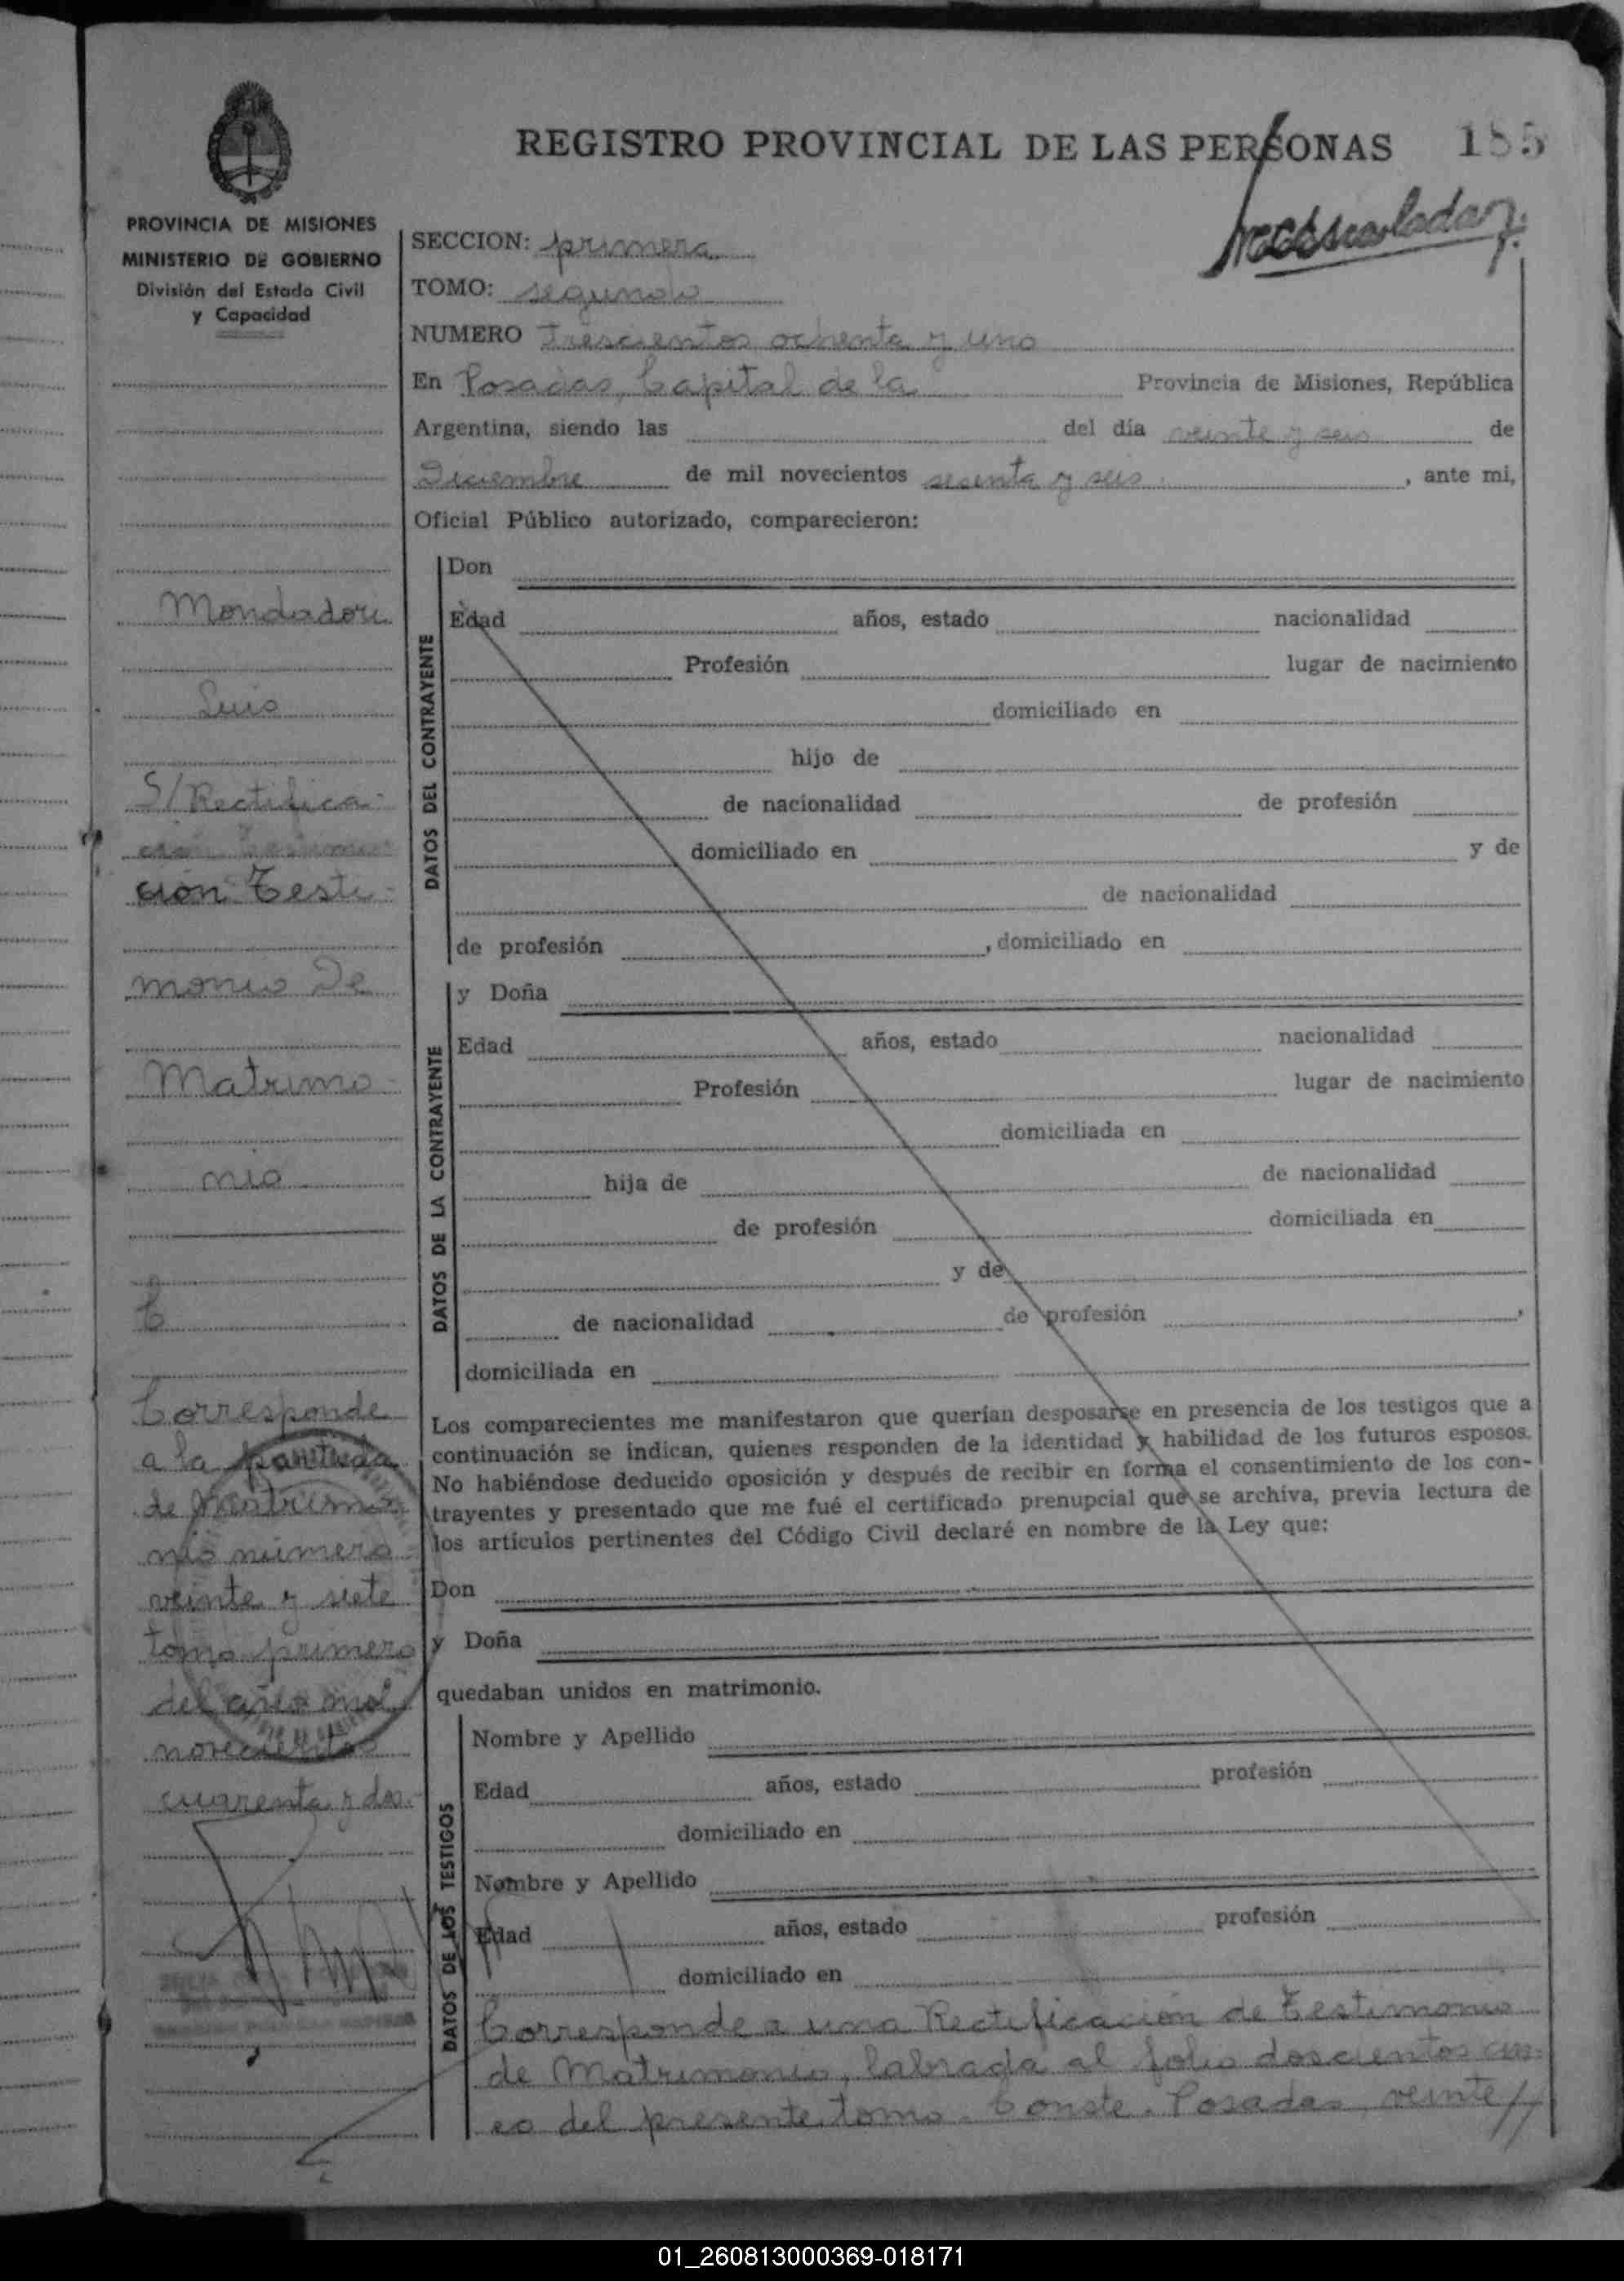 REGISTRO PROVINCIAL DE LAS PERSONAS 185
PROVINCIA DE MISIONES
MINISTERIO DE GOBIERNO
División del Estado Civil
y Capacidad
SECCION: primera
TOMO: segundo
NUMERO Trescientos ochenta y uno
En Posadas, Capital de la Provincia de Misiones, República
Argentina, siendo las del día veinte y seis de
Diciembre de mil novecientos sesenta y seis, ante mi,
Oficial Público autorizado, comparecieron:
Mondadori
Luis
S/Rectifica-
ción Testi-
monio De
Matrimo-
nio
C
Corresponde
a la partida
de Matrimo-
nio número
veinte y siete
tomo primero
del año mil
novecientos
cuarenta y dos.-
DATOS DEL CONTRAYENTE
Don
Edad años, estado nacionalidad
Profesión lugar de nacimiento
domiciliado en
hijo de
de nacionalidad de profesión
domiciliado en y de
de nacionalidad
de profesión , domiciliado en
DATOS DE LA CONTRAYENTE
y Doña
Edad años, estado nacionalidad
Profesión lugar de nacimiento
domiciliada en
hija de de nacionalidad
de profesión domiciliada en
y de
de nacionalidad de profesión ,
domiciliada en
Los comparecientes me manifestaron que querían desposarse en presencia de los testigos que a
continuación se indican, quienes responden de la identidad y habilidad de los futuros esposos.
No habiéndose deducido oposición y después de recibir en forma el consentimiento de los con-
trayentes y presentado que me fué el certificado prenupcial que se archiva, previa lectura de
los artículos pertinentes del Código Civil declaré en nombre de la Ley que:
Don
y Doña
quedaban unidos en matrimonio.
DATOS DE LOS TESTIGOS
Nombre y Apellido
Edad años, estado profesión
domiciliado en
Nombre y Apellido
Edad años, estado profesión
domiciliado en
Corresponde a una Rectificación de Testimonio
de Matrimonio, labrada al folio doscientos cin-
co del presente tomo. Conste. Posadas, veinte //
01_260813000369-018171